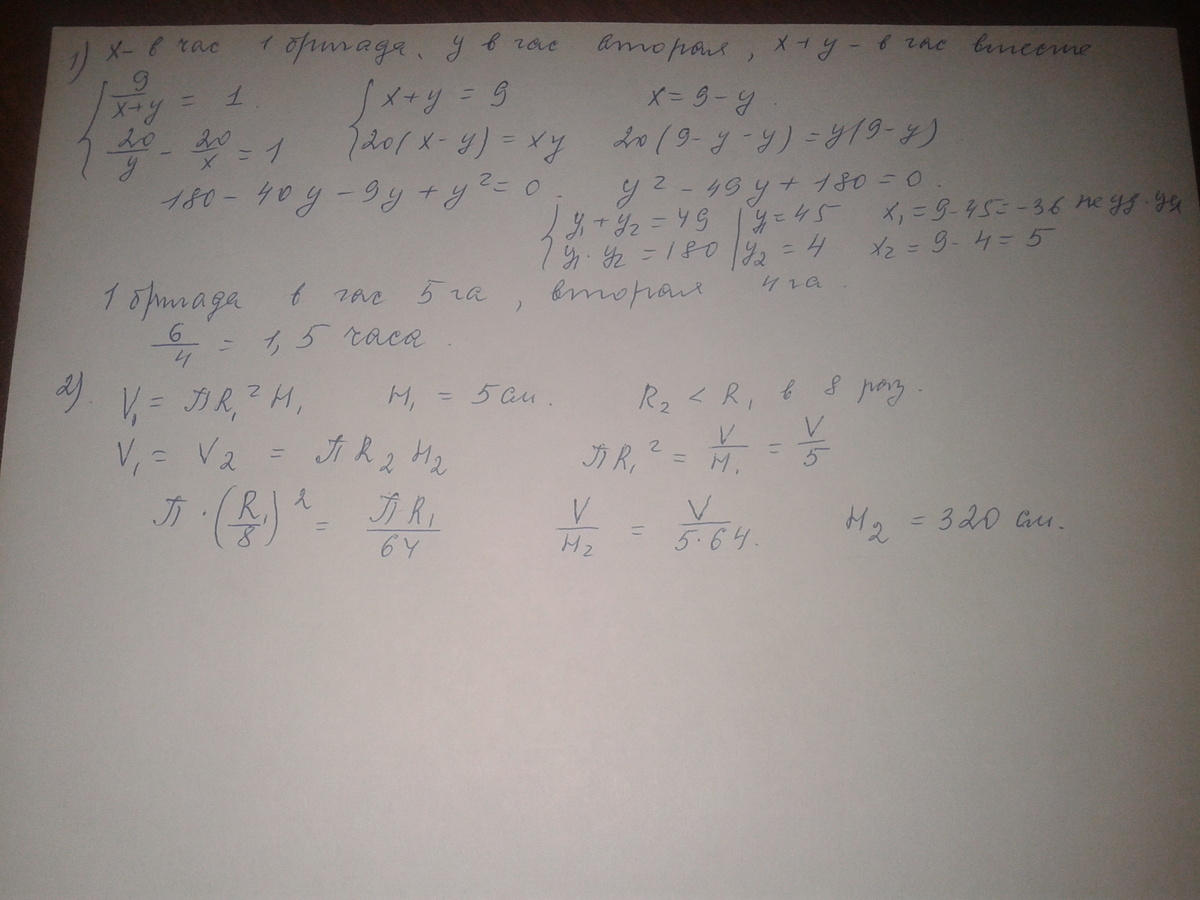 1) x - в час 1 бригада, y в час вторая, x+y - в час вместе
{ 9/(x+y) = 1. { x+y = 9 x = 9-y.
20/y - 20/x = 1 20(x-y) = xy 20(9-y-y) = y(9-y)
180 - 40y - 9y + y² = 0. y² - 49y + 180 = 0.
{ y₁+y₂ = 49 | y₁ = 45 x₁ = 9-45 = -36 не уд. усл
y₁·y₂ = 180 | y₂ = 4 x₂ = 9-4 = 5
1 бригада в час 5 га, вторая 4 га.
6/4 = 1,5 часа.
2). V₁ = ПR₁²H₁ H₁ = 5 см. R₂ < R₁ в 8 раз.
V₁ = V₂ = ПR₂H₂ ПR₁² = V/H₁ = V/5
П·(R₁/8)² = ПR₁/64 V/H₂ = V/(5·64). H₂ = 320 см.